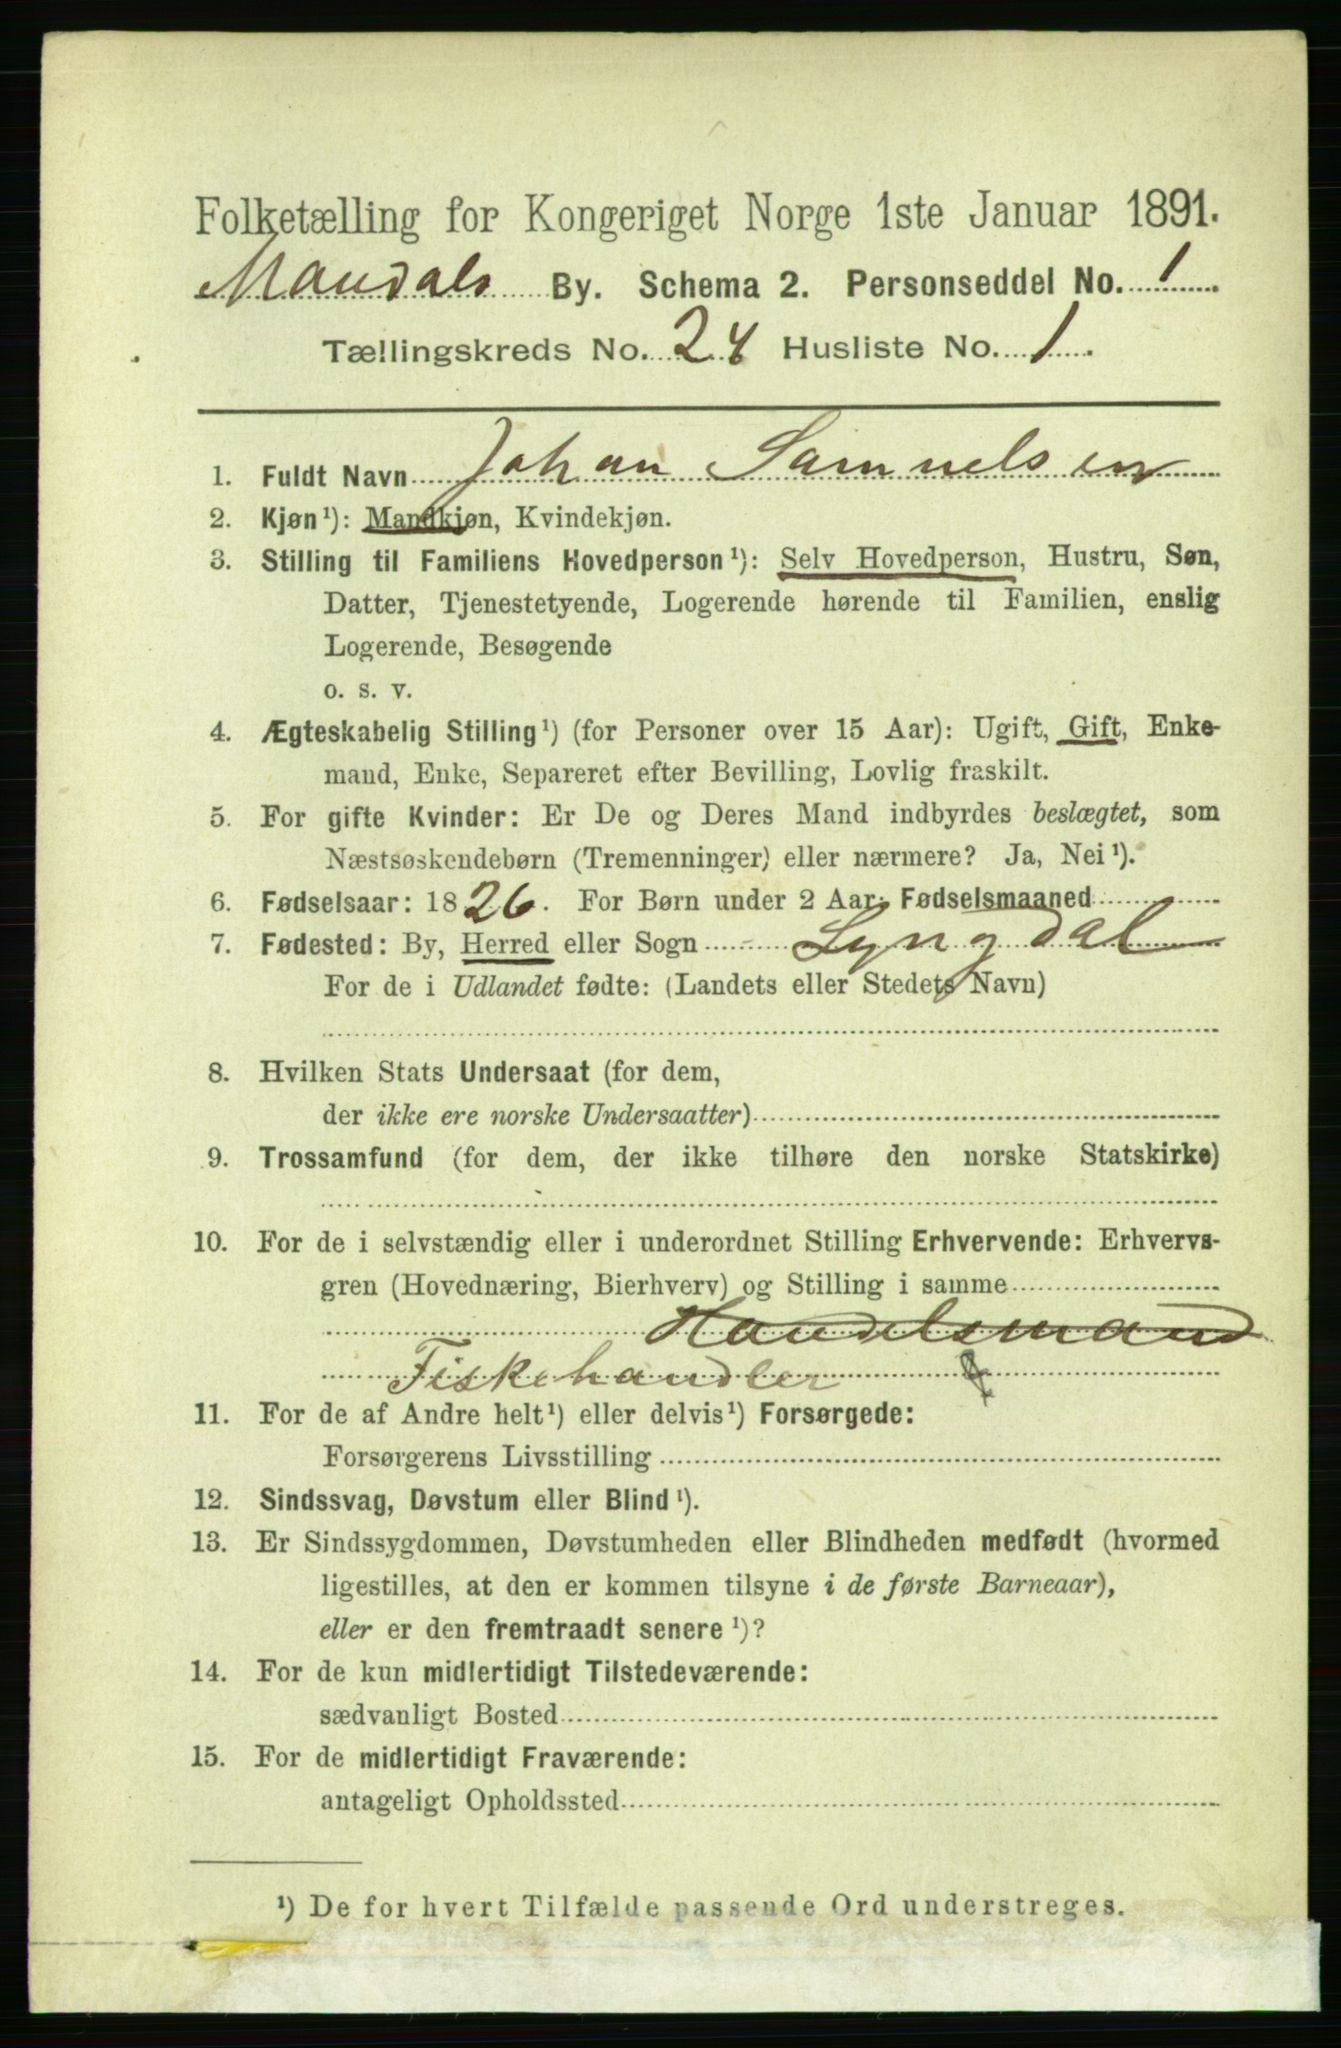 Folketælling for Kongeriget Norge 1ste Januar 1891.
Mandals By. Schema 2. Personseddel No. 1
Tællingskreds No. 24 Husliste No. 1.
1. Fuldt Navn Johan Samuelsen
2. Kjøn¹): Mandkjøn, Kvindekjøn.
3. Stilling til Familiens Hovedperson¹): Selv Hovedperson, Hustru, Søn,
Datter, Tjenestetyende, Logerende hørende til Familien, enslig
Logerende, Besøgende
o. s. v.
4. Ægteskabelig Stilling¹) (for Personer over 15 Aar): Ugift, Gift, Enke-
mand, Enke, Separeret efter Bevilling, Lovlig fraskilt.
5. For gifte Kvinder: Er De og Deres Mand indbyrdes beslægtet, som
Næstsøskendebørn (Tremenninger) eller nærmere? Ja, Nei¹).
6. Fødselsaar: 1826. For Børn under 2 Aar: Fødselsmaaned
7. Fødested: By, Herred eller Sogn Lyngdal
For de i Udlandet fødte: (Landets eller Stedets Navn)
8. Hvilken Stats Undersaat (for dem,
der ikke ere norske Undersaatter)
9. Trossamfund (for dem, der ikke tilhøre den norske Statskirke)
10. For de i selvstændig eller i underordnet Stilling Erhvervende: Erhvervs-
gren (Hovednæring, Bierhverv) og Stilling i samme
Handelsmand
Fiskehandler
11. For de af Andre helt¹) eller delvis¹) Forsørgede:
Forsørgerens Livsstilling
12. Sindssvag, Døvstum eller Blind¹).
13. Er Sindssygdommen, Døvstumheden eller Blindheden medfødt (hvormed
ligestilles, at den er kommen tilsyne i de første Barneaar),
eller er den fremtraadt senere¹)?
14. For de kun midlertidigt Tilstedeværende:
sædvanligt Bosted
15. For de midlertidigt Fraværende:
antageligt Opholdssted
¹) De for hvert Tilfælde passende Ord understreges.